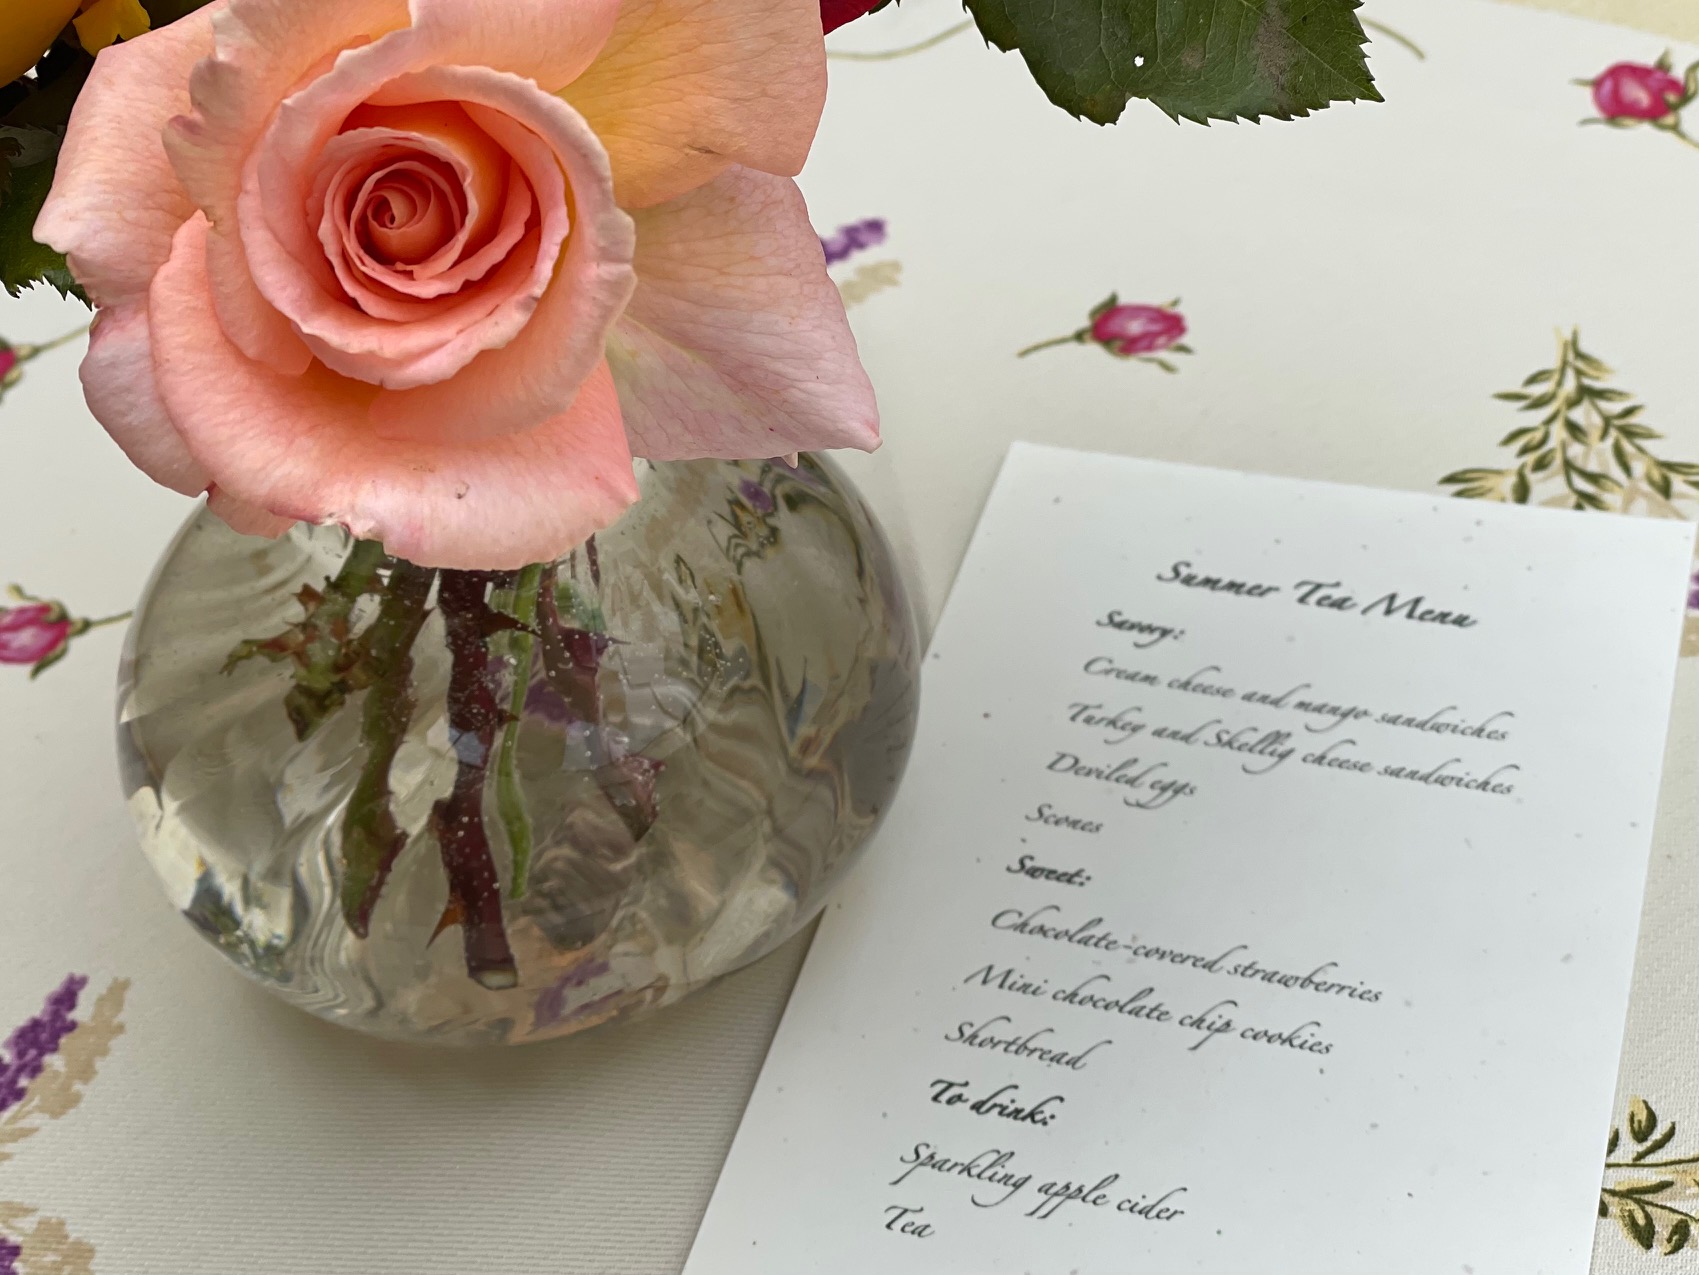 Summer Tea Menu
Savory:
Cream cheese and mango sandwiches
Turkey and Skellig cheese sandwiches
Deviled eggs
Scones
Sweet:
Chocolate-covered strawberries
Mini chocolate chip cookies
Shortbread
To drink:
Sparkling apple cider
Tea